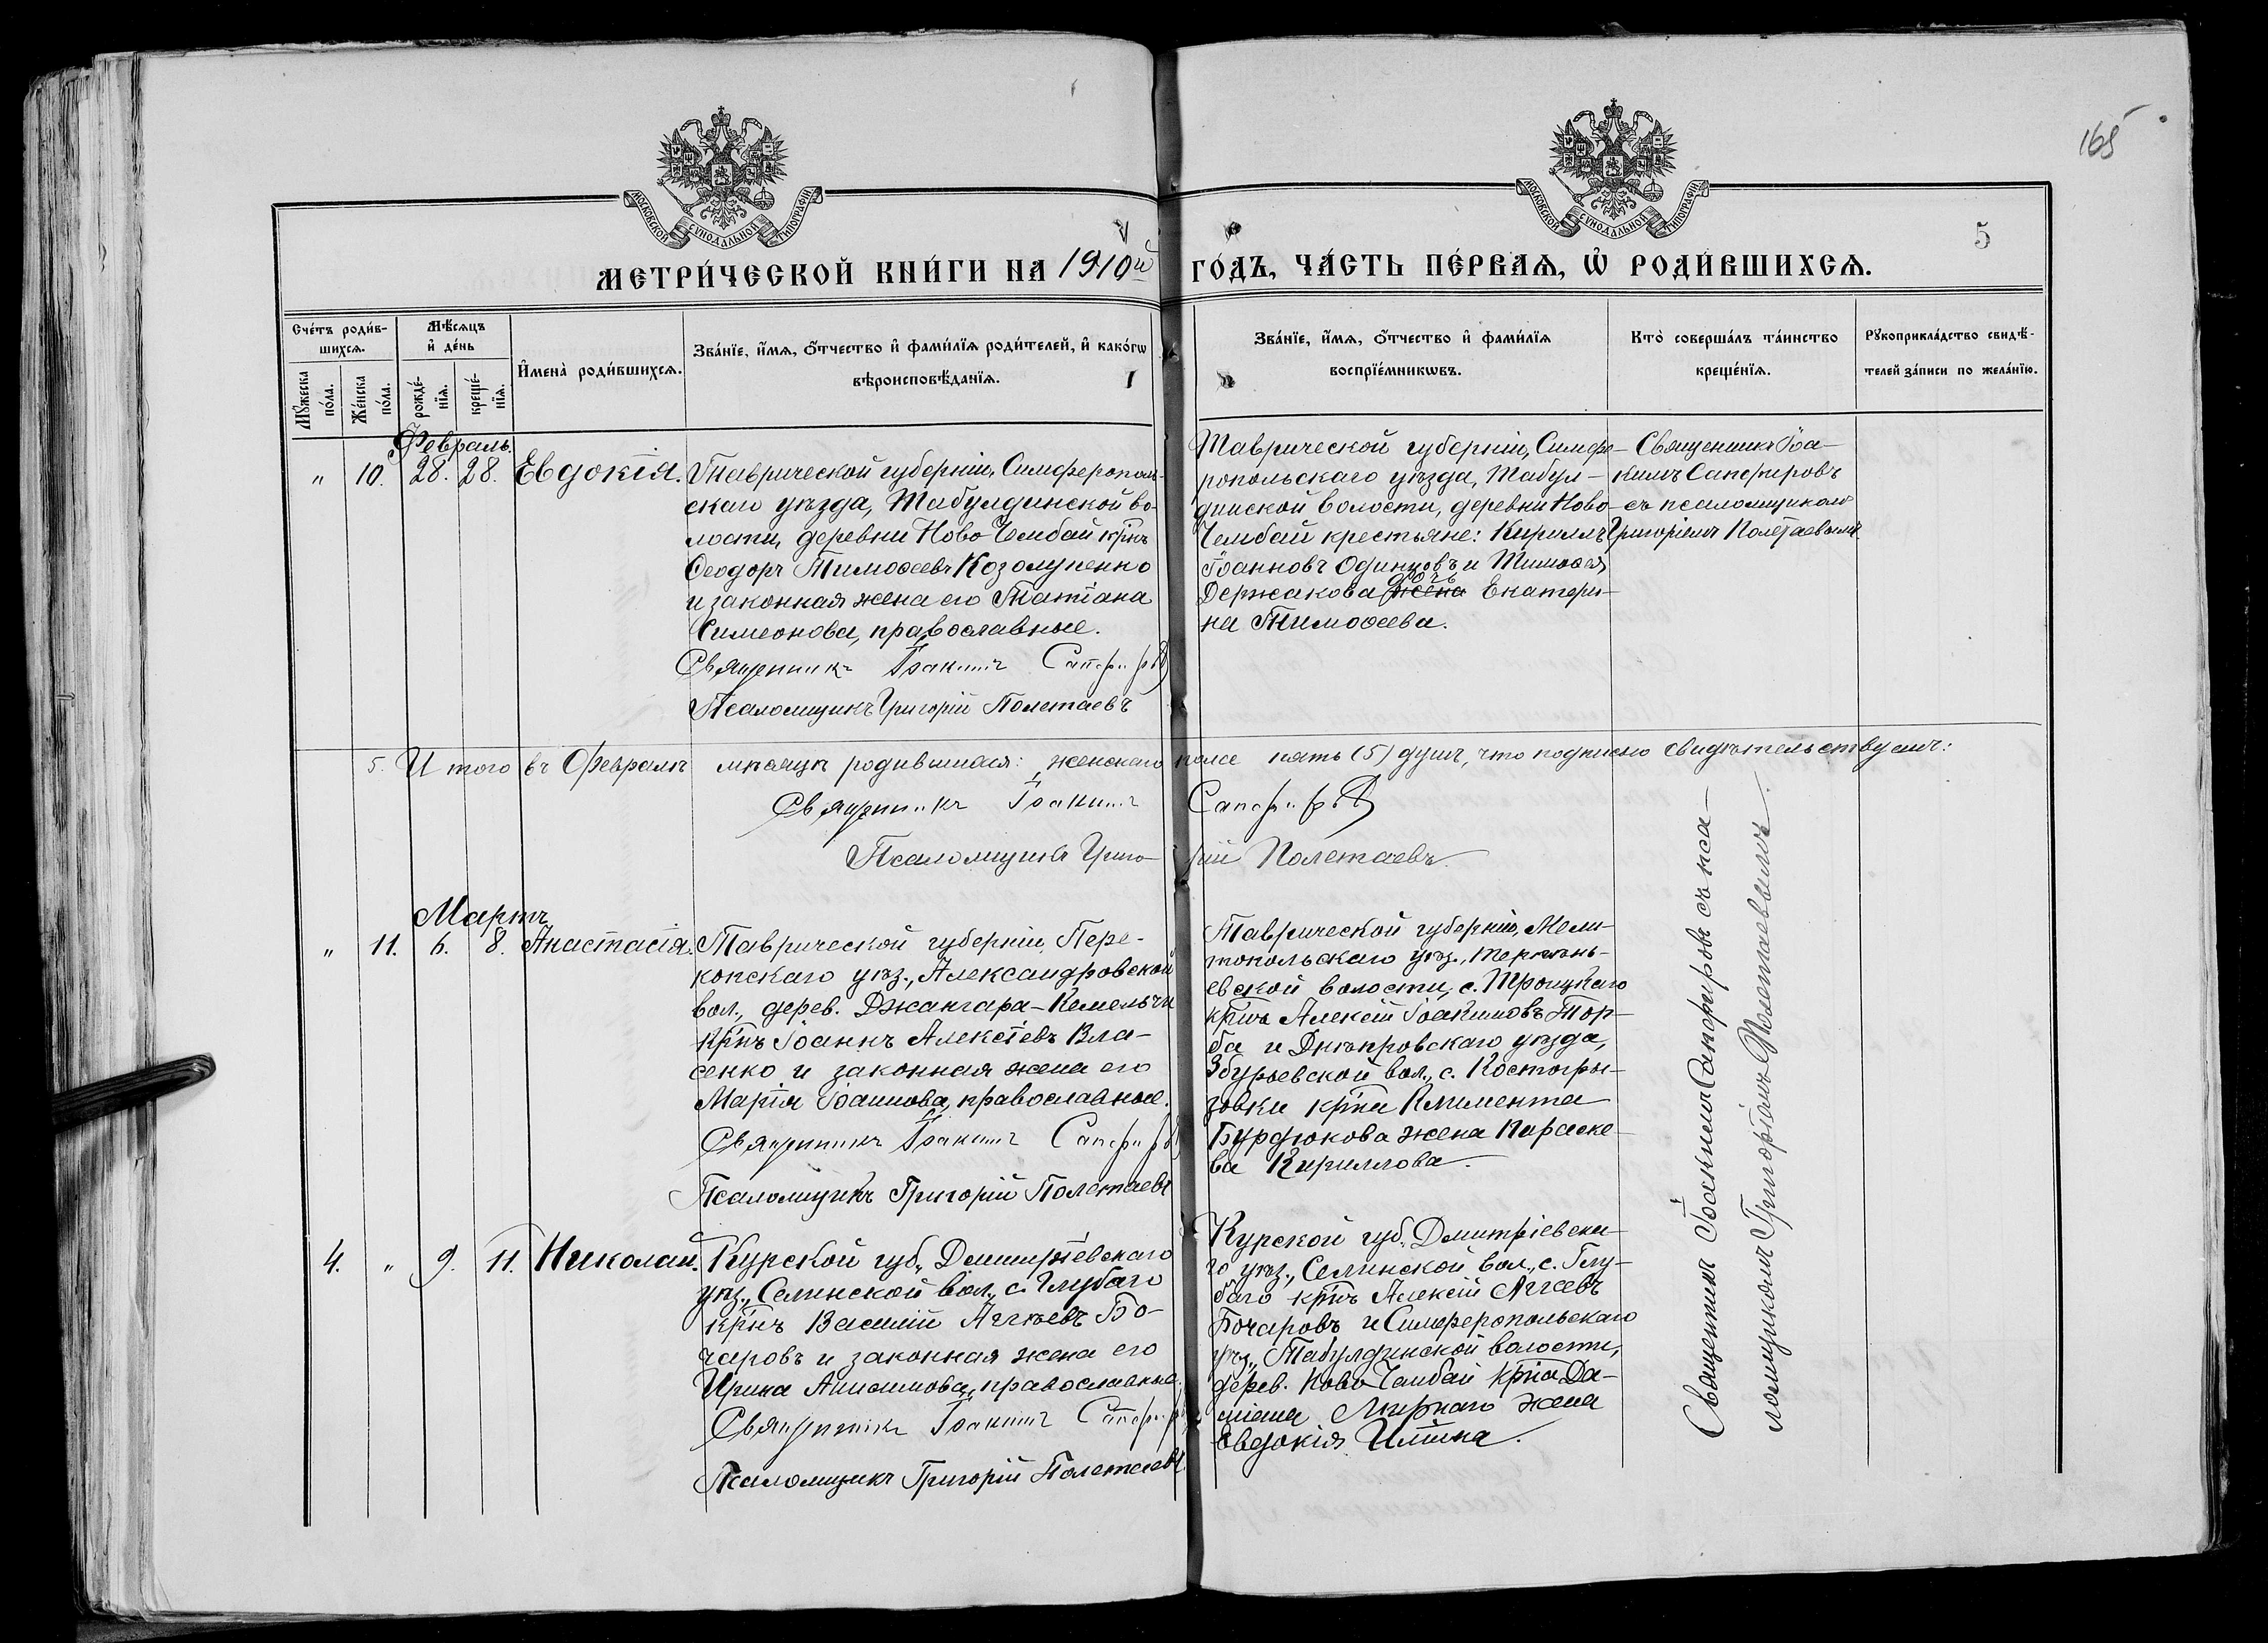 165
5
МОСКОВСКОЙ СѴНОДАЛЬНОЙ ТИПОГРАФІИ
МОСКОВСКОЙ СѴНОДАЛЬНОЙ ТИПОГРАФІИ
МЕТРИ́ЧЕСКОЙ КНИ́ГИ НА 1910й ГО́ДЪ, ЧА́СТЬ ПЕ́РВАѦ, Ѡ РОДИ́ВШИХСѦ.
Сче́тъ роди́в-
шихсѧ.
Мꙋ́жеска по́ла.
Же́нска по́ла.
Мѣ́сѧцъ
и҆ де́нь
рожде́-
нїѧ.
креще́-
нїѧ.
И҆мена̀ роди́вшихсѧ.
Зва́нїе, и҆́мѧ, ѻ҆́тчество и҆ фами́лїѧ роди́телей, и҆ како́гѡ
вѣроисповѣ́данїѧ.
Зва́нїе, и҆́мѧ, ѻ҆́тчество и҆ фами́лїѧ
воспрїе́мникѡвъ.
Кто̀ соверша́лъ та́инство
креще́нїѧ.
Рꙋкоприкла́дство свидѣ́-
телей за́писи по жела́нїю.
Февраль.
" 10. 28. 28. Евдокія.
Таврической губерніи, Симферополь-
скаго уѣзда, Табулдинской во-
лости, деревни Ново-Чембай крнъ
Ѳеодоръ Тимоѳеевъ Козолупенко
и законная жена его Татіана
Симеонова, православные.
Священникъ Іоакимъ Сапфировъ
Псаломщикъ Григорій Полетаевъ
Таврической губерніи, Симфе-
ропольскаго уѣзда, Табул-
динской волости, деревни Ново-
Чембай крестьяне: Кириллъ
Іоанновъ Одинцовъ и Тимоѳея
дочь
Держакова жена Екатери-
на Тимоѳеева.
Священникъ Іоа-
кимъ Сапфировъ
съ псаломщикомъ
Григоріемъ Полетаевымъ
5. Итого въ Февралѣ мѣсяцѣ родившихся: женскаго пола пять (5) душъ, что подписью свидѣтельствуемъ:
Священникъ Іоакимъ Сапфировъ
Псаломщикъ Григорій Полетаевъ
Мартъ
" 11. 6. 8. Анастасія.
Таврической губерніи, Пере-
копскаго уѣз., Александровской
вол., дерев. Джангара-Кемельчи
крнъ Іоаннъ Алексіевъ Вла-
сенко и законная жена его
Марія Іоаннова, православные.
Священникъ Іоакимъ Сапфировъ
Псаломщикъ Григорій Полетаевъ
Таврической губерніи, Мели-
топольскаго уѣз., Терпѣнь-
евской волости, с. Троицкаго
крнъ Алексій Іоакимовъ Тор-
ба и Днѣпровскаго уѣзда,
Збурьевской вол., с. Костогры-
зовки крна Климента
Бурдюкова жена Параске-
ва Кириллова.
4. " 9. 11. Николай.
Курской губ., Дмитріевскаго
уѣз., Селинской вол., с. Глубаго
крнъ Василій Аггѣевъ Бо-
чаровъ и законная жена его
Ирина Анисимова, православные.
Священникъ Іоакимъ Сапфировъ
Псаломщикъ Григорій Полетаевъ
Курской губ., Дмитріевска-
го уѣз., Селинской вол., с. Глу-
баго крнъ Алексій Аггеевъ
Бочаровъ и Симферопольскаго
уѣз., Табулдинской волости,
дерев. Ново-Чембай крна Да-
міана Мирнаго жена
Евдокія Ильина.
Священникъ Іоакимъ Сапфировъ съ пса-
ломщикомъ Григоріемъ Полетаевымъ.